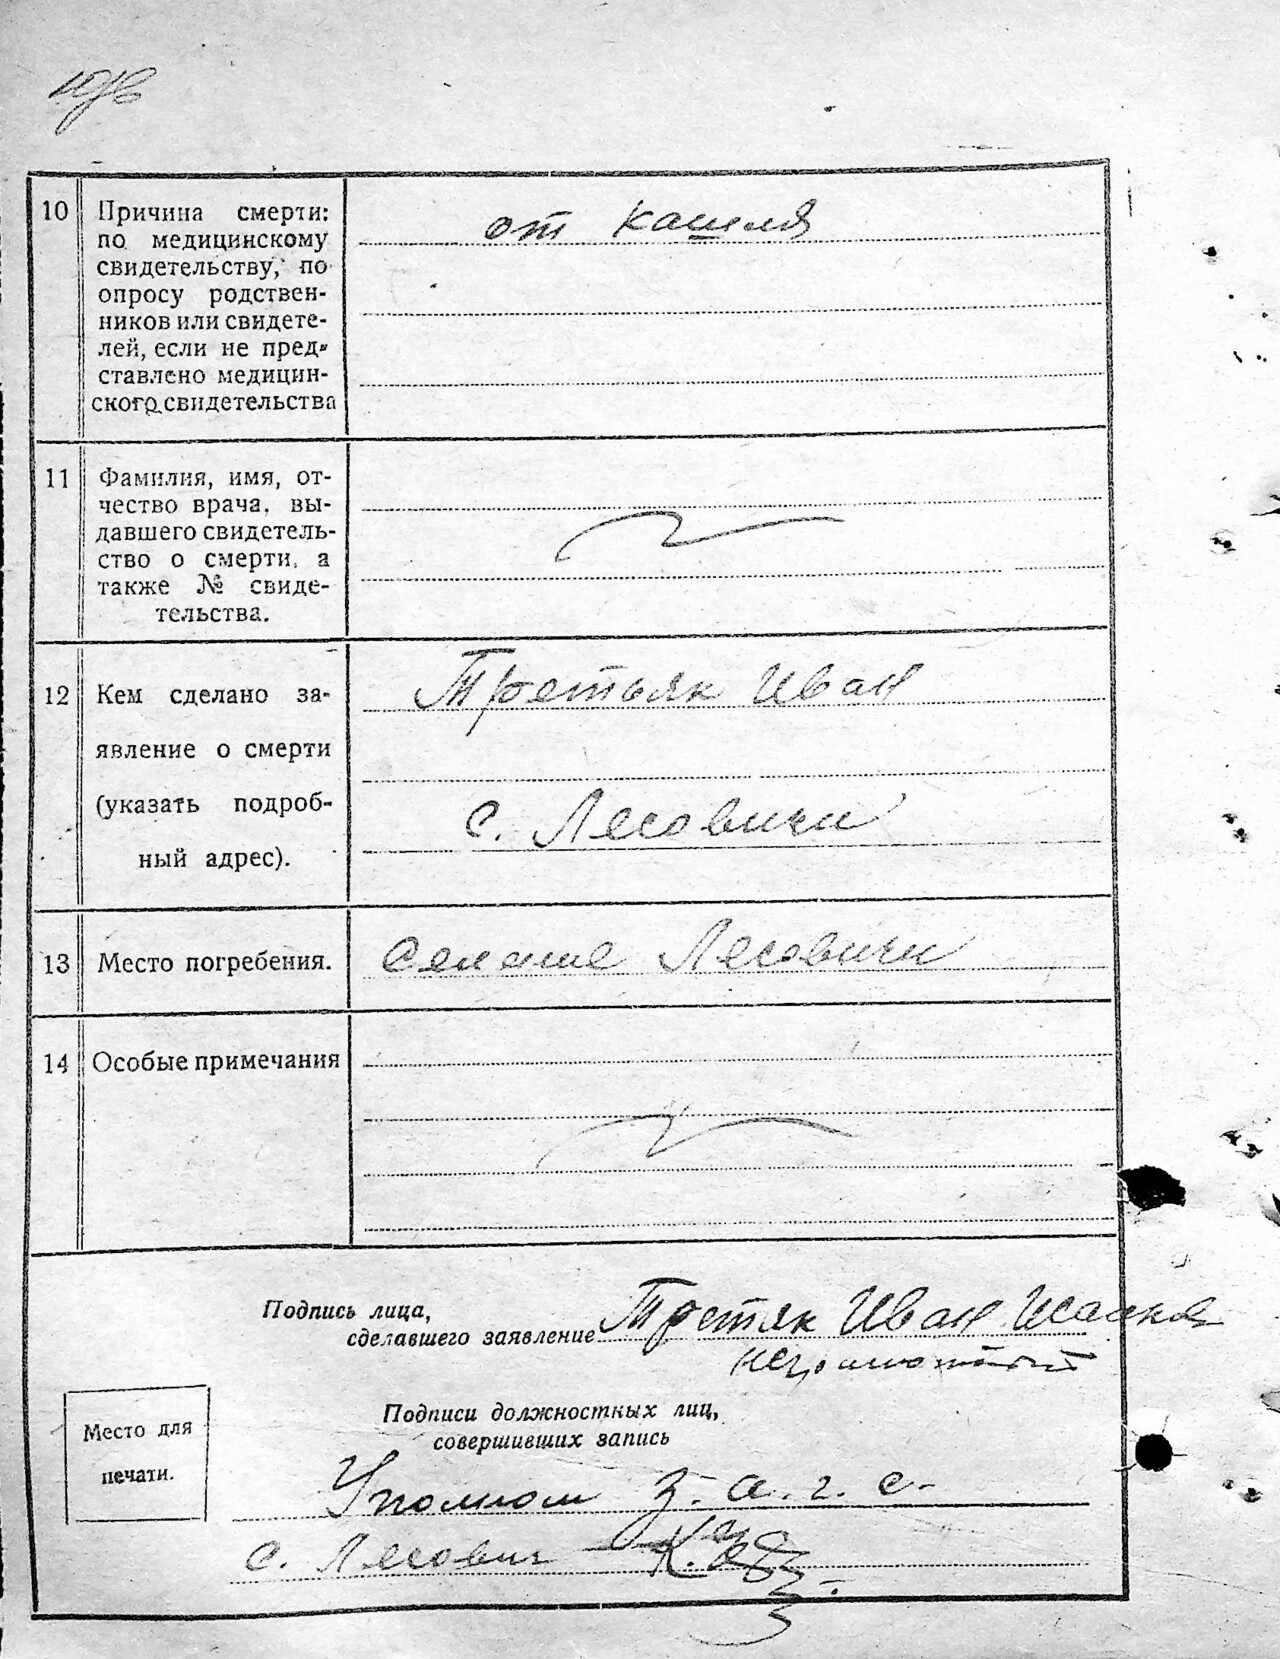 10 Причина смерти:
по медицинскому
свидетельству, по
опросу родствен-
ников или свидете-
лей, если не пред-
ставлено медицин-
ского свидетельства
от кашля
11 Фамилия, имя, от-
чество врача, вы-
давшего свидетель-
ство о смерти, а
также № свиде-
тельства.
12 Кем сделано за-
явление о смерти
(указать подроб-
ный адрес).
Третьяк Иван
с. Лесовичи
13 Место погребения.
Лесовичи
14 Особые примечания
Подпись лица,
сделавшего заявление
Третяк Иван
неграмотный
Подписи должностных лиц,
совершивших запись
Место для
печати.
з. а. г. с.
с. Лесович